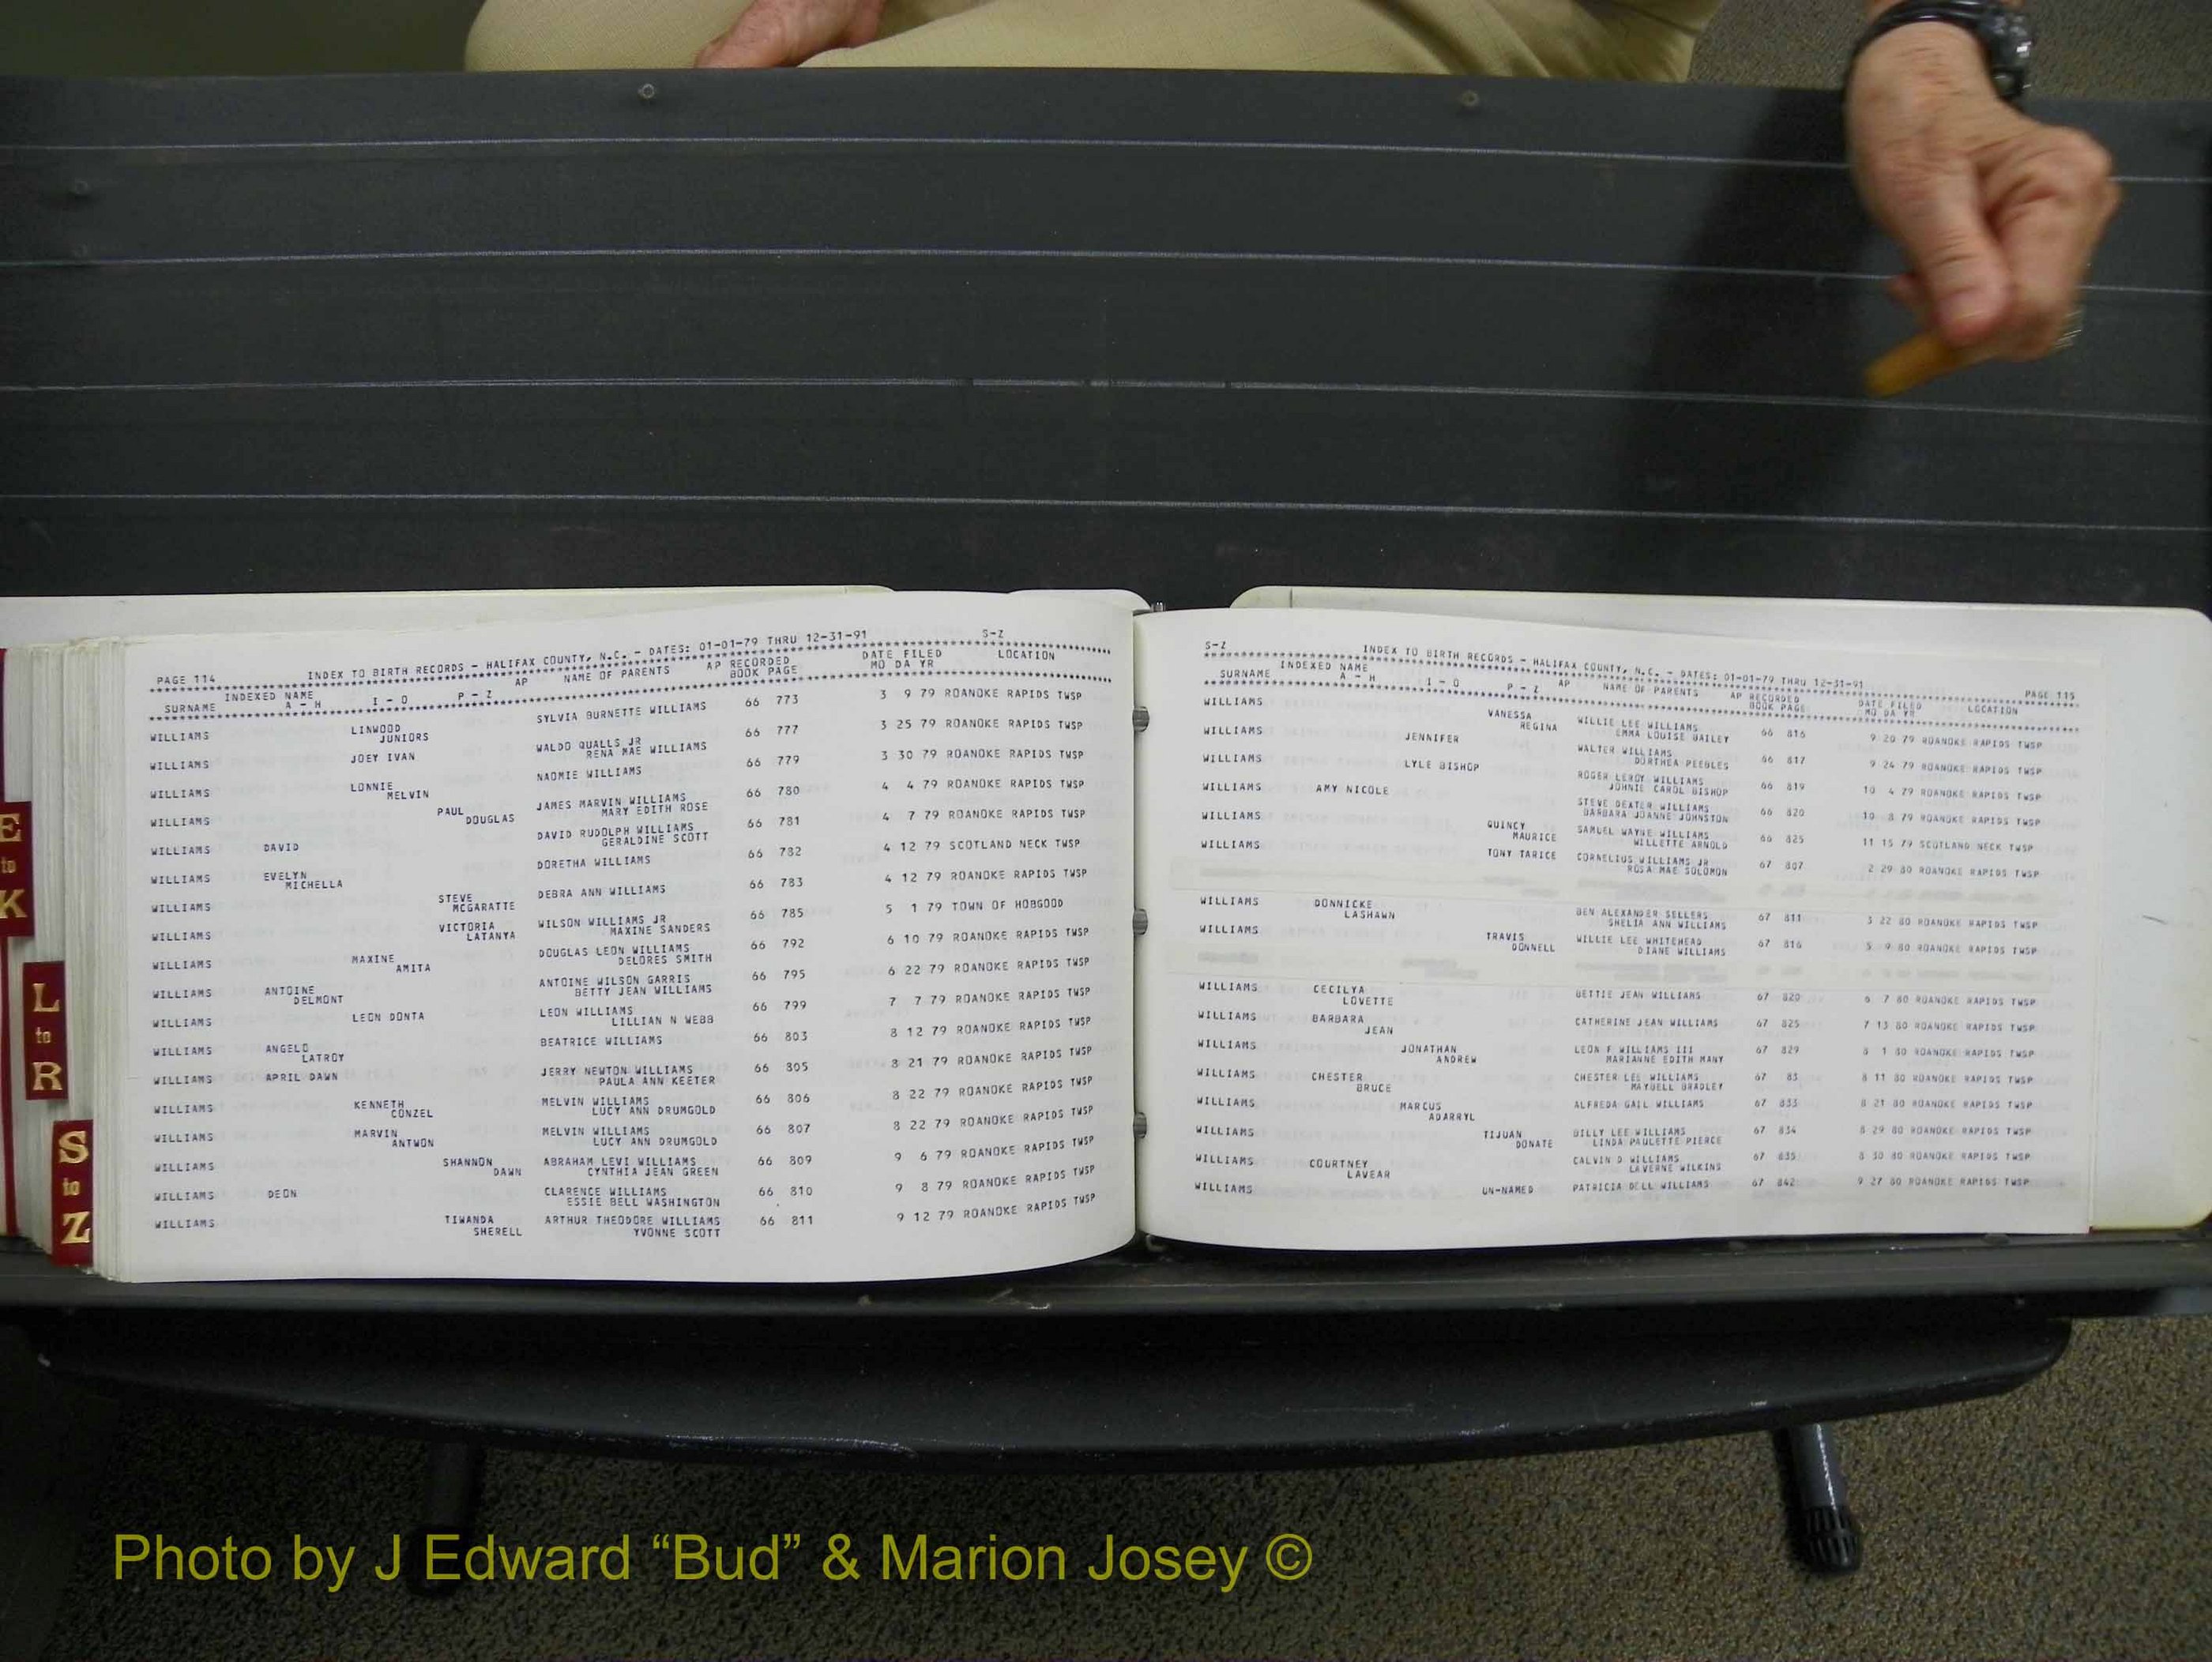 PAGE 114 INDEX TO BIRTH RECORDS - HALIFAX COUNTY, N.C. - DATES: 01-01-79 THRU 12-31-91 S-Z
SURNAME INDEXED NAME A - H I - O P - Z AP NAME OF PARENTS AP RECORDED BOOK PAGE DATE FILED MO DA YR LOCATION
WILLIAMS LINWOOD JUNIORS SYLVIA BURNETTE WILLIAMS 66 773 3 9 79 ROANOKE RAPIDS TWSP
WILLIAMS JOEY IVAN WALDO QUALLS JR RENA MAE WILLIAMS 66 777 3 25 79 ROANOKE RAPIDS TWSP
WILLIAMS LONNIE MELVIN NAOMIE WILLIAMS 66 779 3 30 79 ROANOKE RAPIDS TWSP
WILLIAMS PAUL DOUGLAS JAMES MARVIN WILLIAMS MARY EDITH ROSE 66 780 4 4 79 ROANOKE RAPIDS TWSP
WILLIAMS DAVID DAVID RUDOLPH WILLIAMS GERALDINE SCOTT 66 781 4 7 79 ROANOKE RAPIDS TWSP
WILLIAMS EVELYN MICHELLA DORETHA WILLIAMS 66 782 4 12 79 SCOTLAND NECK TWSP
WILLIAMS STEVE MCGARATTE DEBRA ANN WILLIAMS 66 783 4 12 79 ROANOKE RAPIDS TWSP
WILLIAMS VICTORIA LATANYA WILSON WILLIAMS JR MAXINE SANDERS 66 785 5 1 79 TOWN OF HOBGOOD
WILLIAMS MAXINE AMITA DOUGLAS LEON WILLIAMS DELORES SMITH 66 792 6 10 79 ROANOKE RAPIDS TWSP
WILLIAMS ANTOINE DELMONT ANTOINE WILSON GARRIS BETTY JEAN WILLIAMS 66 795 6 22 79 ROANOKE RAPIDS TWSP
WILLIAMS LEON DONTA LEON WILLIAMS LILLIAN N WEBB 66 799 7 7 79 ROANOKE RAPIDS TWSP
WILLIAMS ANGELO LATROY BEATRICE WILLIAMS 66 803 8 12 79 ROANOKE RAPIDS TWSP
WILLIAMS APRIL DAWN JERRY NEWTON WILLIAMS PAULA ANN KEETER 66 805 8 21 79 ROANOKE RAPIDS TWSP
WILLIAMS KENNETH CONZEL MELVIN WILLIAMS LUCY ANN DRUMGOLD 66 806 8 22 79 ROANOKE RAPIDS TWSP
WILLIAMS MARVIN ANTWON MELVIN WILLIAMS LUCY ANN DRUMGOLD 66 807 8 22 79 ROANOKE RAPIDS TWSP
WILLIAMS SHANNON DAWN ABRAHAM LEVI WILLIAMS CYNTHIA JEAN GREEN 66 809 9 6 79 ROANOKE RAPIDS TWSP
WILLIAMS DEON CLARENCE WILLIAMS ESSIE BELL WASHINGTON 66 810 9 8 79 ROANOKE RAPIDS TWSP
WILLIAMS TIWANDA SHERELL ARTHUR THEODORE WILLIAMS YVONNE SCOTT 66 811 9 12 79 ROANOKE RAPIDS TWSP
S-Z INDEX TO BIRTH RECORDS - HALIFAX COUNTY, N.C. - DATES: 01-01-79 THRU 12-31-91 PAGE 115
SURNAME INDEXED NAME A - H I - O P - Z AP NAME OF PARENTS AP RECORDED BOOK PAGE DATE FILED MO DA YR LOCATION
WILLIAMS VANESSA REGINA WILLIE LEE WILLIAMS EMMA LOUISE BAILEY 66 816 9 20 79 ROANOKE RAPIDS TWSP
WILLIAMS JENNIFER WALTER WILLIAMS DORTHEA PEEBLES 66 817 9 24 79 ROANOKE RAPIDS TWSP
WILLIAMS LYLE BISHOP ROGER LEROY WILLIAMS JOHNIE CAROL BISHOP 66 819 10 4 79 ROANOKE RAPIDS TWSP
WILLIAMS AMY NICOLE STEVE DEXTER WILLIAMS BARBARA JOANNE JOHNSTON 66 820 10 8 79 ROANOKE RAPIDS TWSP
WILLIAMS QUINCY MAURICE SAMUEL WAYNE WILLIAMS WILLETTE ARNOLD 66 825 11 15 79 SCOTLAND NECK TWSP
WILLIAMS TONY TARICE CORNELIUS WILLIAMS JR ROSA MAE SOLOMON 67 807 2 29 80 ROANOKE RAPIDS TWSP
WILLIAMS DONNICKE LASHAWN BEN ALEXANDER SELLERS SHELIA ANN WILLIAMS 67 811 3 22 80 ROANOKE RAPIDS TWSP
WILLIAMS TRAVIS DONNELL WILLIE LEE WHITEHEAD DIANE WILLIAMS 67 816 5 9 80 ROANOKE RAPIDS TWSP
WILLIAMS CECILYA LOVETTE BETTIE JEAN WILLIAMS 67 820 6 7 80 ROANOKE RAPIDS TWSP
WILLIAMS BARBARA JEAN CATHERINE JEAN WILLIAMS 67 825 7 13 80 ROANOKE RAPIDS TWSP
WILLIAMS JONATHAN ANDREW LEON F WILLIAMS III MARIANNE EDITH MANY 67 829 8 1 80 ROANOKE RAPIDS TWSP
WILLIAMS CHESTER BRUCE CHESTER LEE WILLIAMS MAYBELL BRADLEY 67 83 8 11 80 ROANOKE RAPIDS TWSP
WILLIAMS MARCUS ADARRYL ALFREDA GAIL WILLIAMS 67 833 8 21 80 ROANOKE RAPIDS TWSP
WILLIAMS TIJUAN DONATE BILLY LEE WILLIAMS LINDA PAULETTE PIERCE 67 834 8 29 80 ROANOKE RAPIDS TWSP
WILLIAMS COURTNEY LAVEAR CALVIN D WILLIAMS LAVERNE WILKINS 67 835 8 30 80 ROANOKE RAPIDS TWSP
WILLIAMS UN-NAMED PATRICIA DELL WILLIAMS 67 842 9 27 80 ROANOKE RAPIDS TWSP
E to K
L to R
S to Z
Photo by J Edward “Bud” & Marion Josey ©